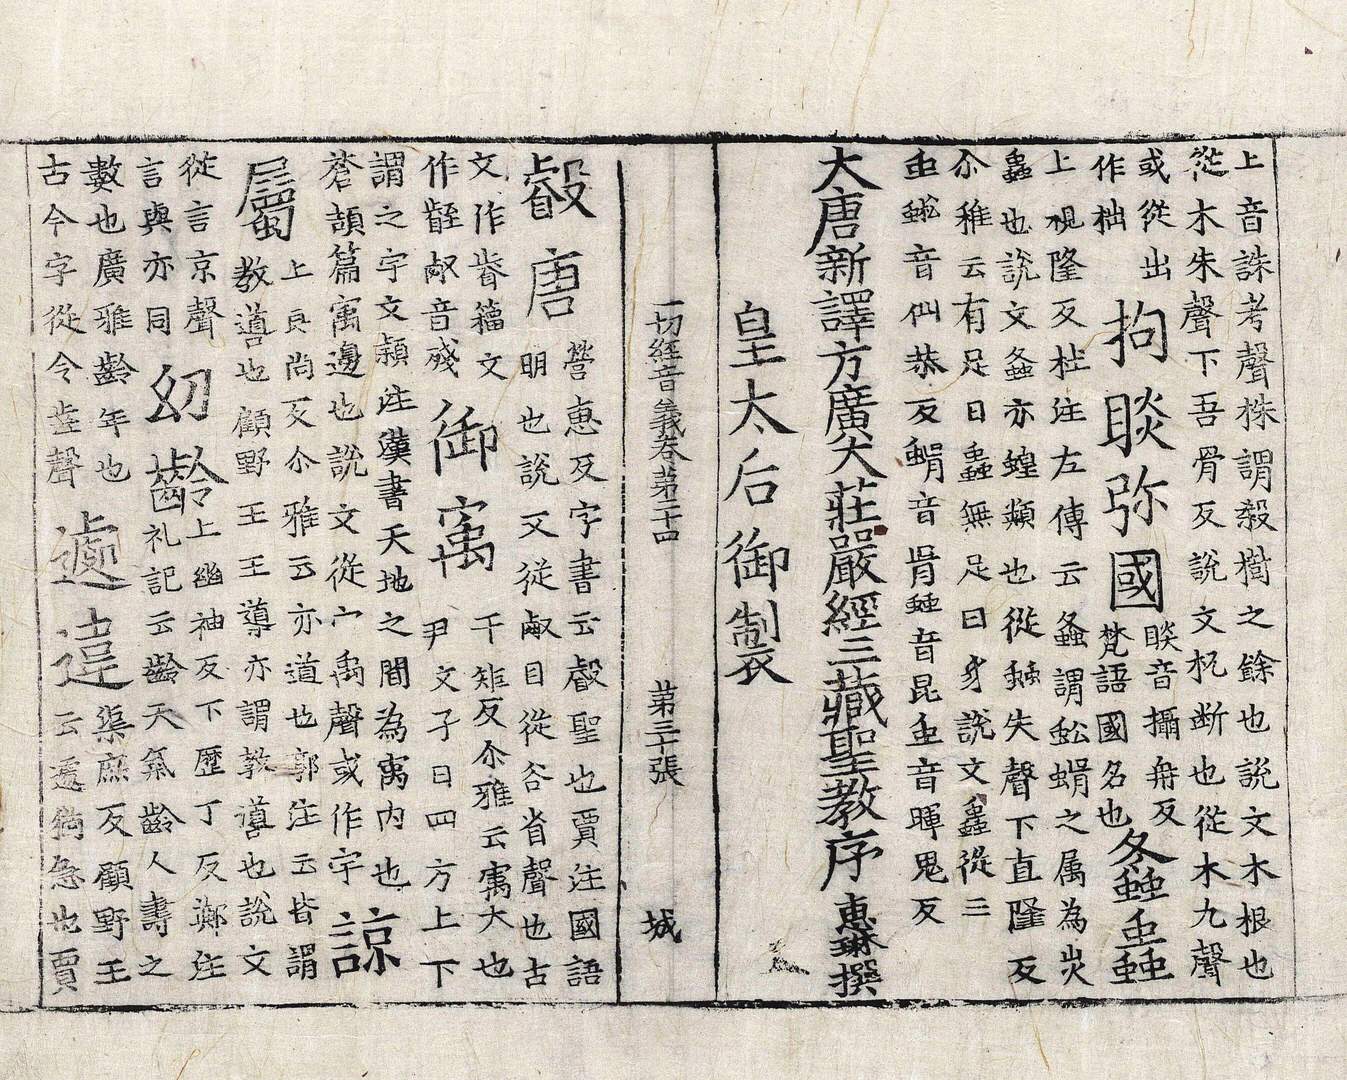 上音誅考聲株謂殺樹之餘也說文木根也
從木朱聲下吾骨反說文杌断也從木九聲
或從出
作柮
拘睒弥國
睒音攝舟反
梵語國名也
螽蟲
上祝隆反杜注左傳云螽謂蚣蝑之属為灾
蟲也說文螽亦蝗類也從䖵失聲下直隆反
尒雅云有足曰蟲無足曰豸說文蟲從三
虫蚣音似恭反蝑音胥䖵音昆虫音暉鬼反
大唐新譯方廣大莊嚴經三藏聖教序 惠琳撰
皇太后御製
一切經音義卷苐二十四 苐三十張 城
叡唐
營恵反字書云叡聖也賈注國語
明也說文從㕡目從谷省聲也古
文作睿籀文
作壡㕡音殘
御㝢
千矩反尒雅云㝢大也
尹文子曰四方上下
謂之宇文穎注漢書天地之間為㝢内也
蒼頡篇㝢邊也說文從宀禹聲或作宇
諒
属
上良尚反尒雅云亦道也郭注云皆謂
教導也顧野王王導亦謂教導也說文
從言京聲
言與亦同
幼齡
上幽袖反下歷丁反鄭注
礼記云齡天氣齡人壽之
數也廣雅齡年也
古今字從令齒聲
遽違
渠庶反顧野王
云遽猶急也賈